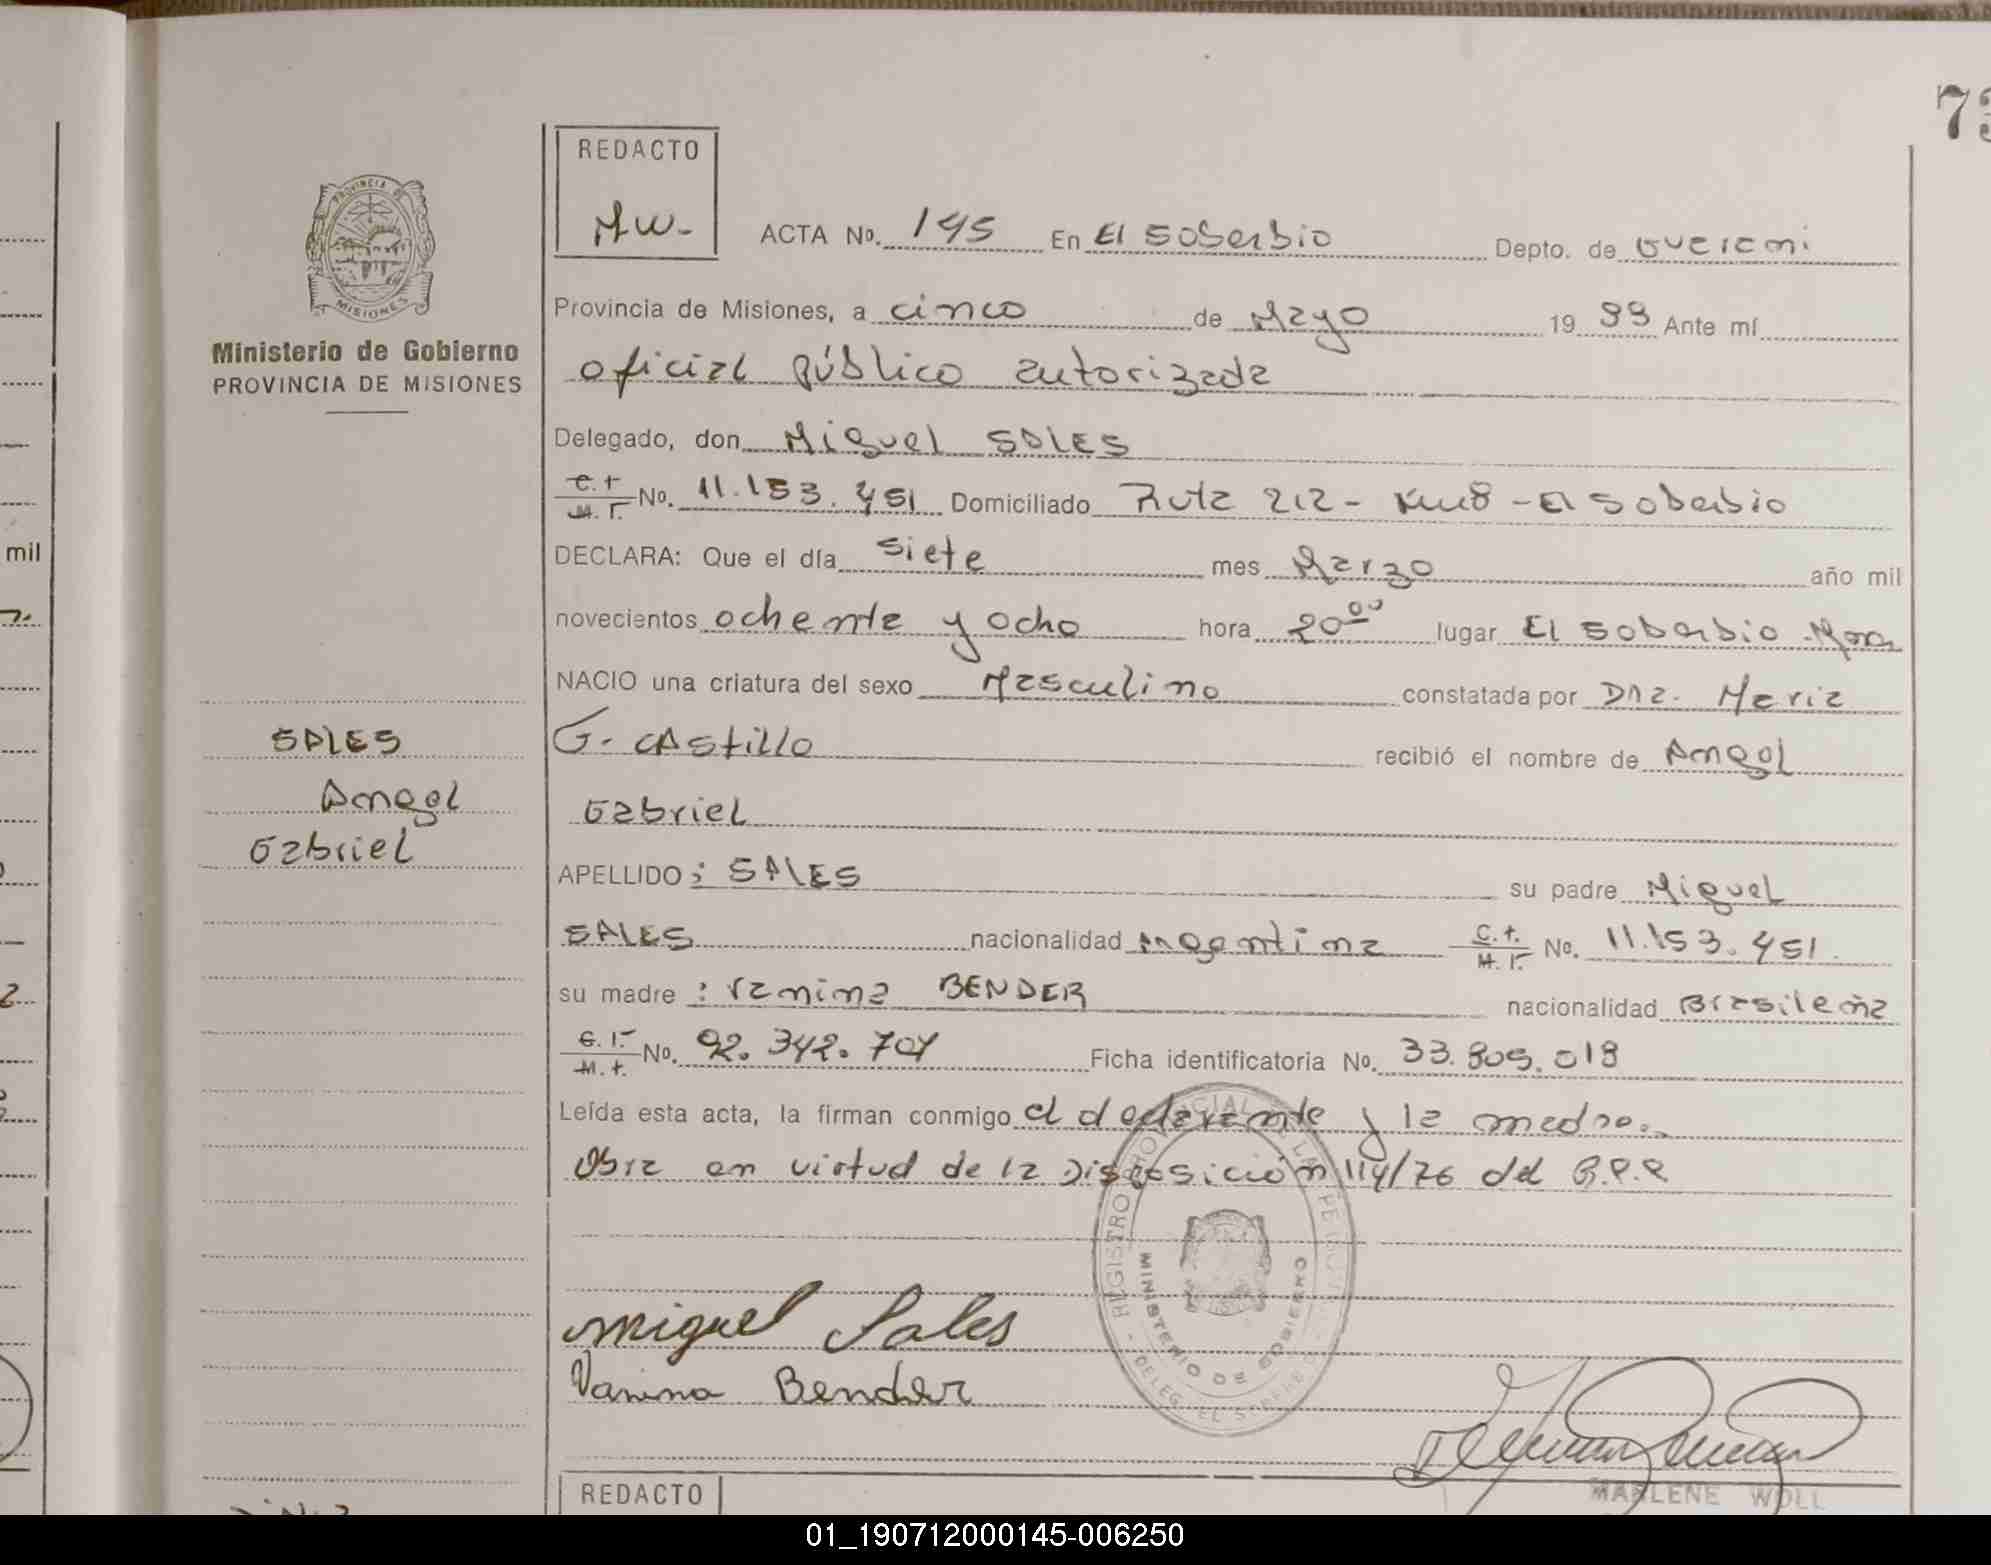 73
REDACTO
MW-
ACTA No. 145 En El Soberbio Depto. de Guarani
Provincia de Misiones, a cinco de Mayo 19 88 Ante mí
oficial público autorizada
Delegado, don Miguel SALES
C.I. M.I. No. 11.153.451 Domiciliado Ruta 212 - Km8 - El Soberbio
DECLARA: Que el día siete mes Marzo año mil
novecientos ochenta y ocho hora 20 00 lugar El Soberbio Mnes
NACIO una criatura del sexo Masculino constatada por Dra. Maria
G. Castillo recibió el nombre de Angel
Gabriel
APELLIDO: SALES su padre Miguel
SALES nacionalidad Argentina C.I. M.I. No. 11.153.451
su madre: Vanina BENDER nacionalidad Brasileña
C.I. M.I. No. 92.342.704 Ficha identificatoria No. 33.809.018
Leída esta acta, la firman conmigo el declarante y la madre.
Obra en virtud de la Disposición 114/76 del R.P.P.
Miguel Sales
Vanina Bender
MARLENE WOLL
REDACTO
PROVINCIA DE MISIONES
Ministerio de Gobierno
PROVINCIA DE MISIONES
SALES
Angel
Gabriel
mil
MINISTERIO DE GOBIERNO
01_190712000145-006250